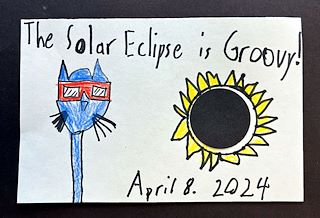 The Solar Eclipse is Groovy!
April 8. 2024